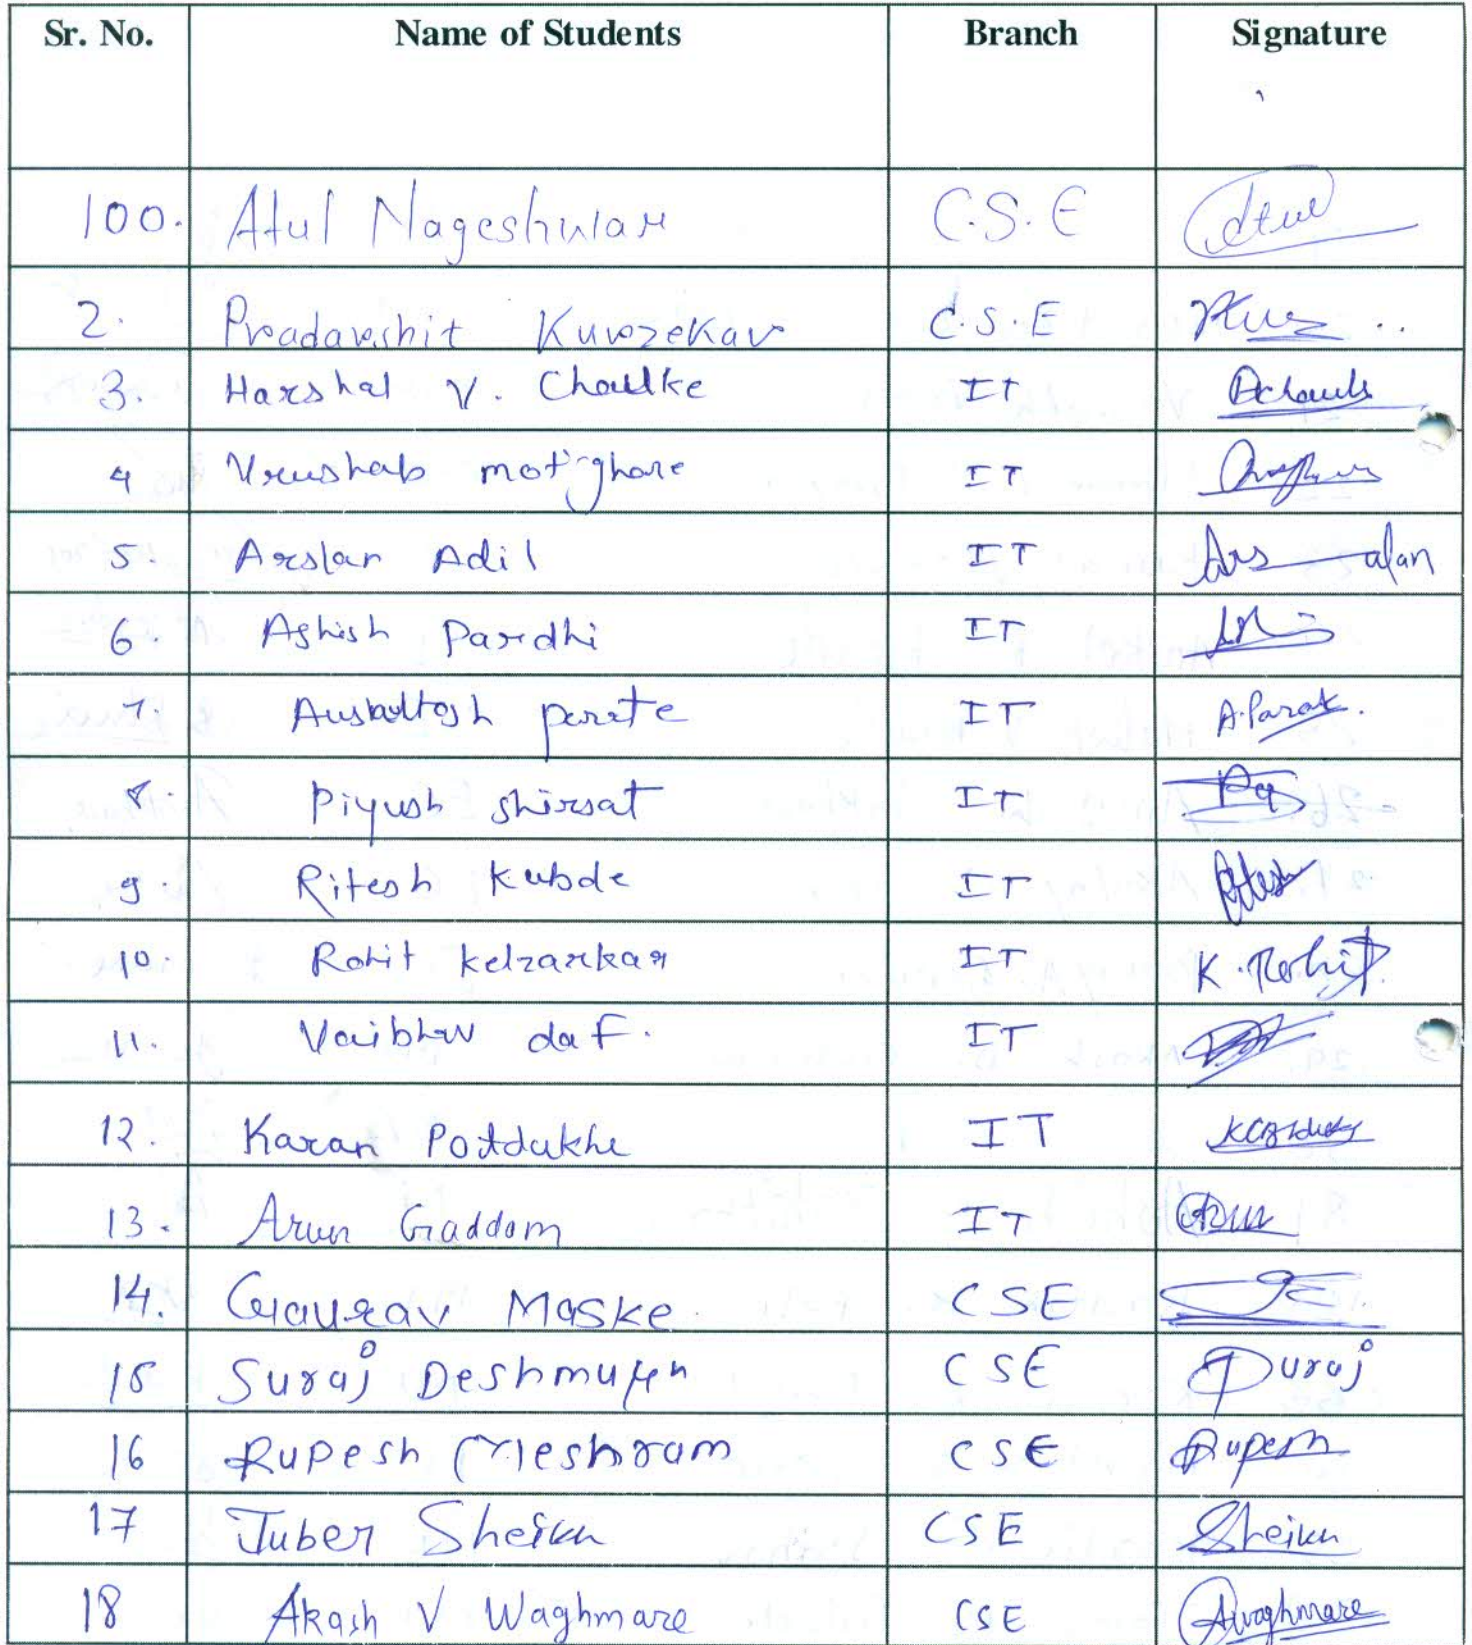 Sr. No. Name of Students Branch Signature
100. Atul Nageshwar C.S.E Atul
2. Pradarshit Kurzekar C.S.E
3. Harshal V. Chaulke IT
4 Vrushab motghare IT
5. Arslan Adil IT Ars alan
6. Ashish Pardhi IT
7. parate IT A.Parate.
8. Piyush shirsat IT
9. Ritesh Kubde IT Ritesh
10. Rohit kelzarkar IT K. Rohit
11. Vaibhav daf. IT
12. Karan Potdukhe IT
13. Arun Gaddam IT Arun
14. Gaurav Maske CSE
15 Suraj Deshmukh CSE Suraj
16 Rupesh Meshram CSE Rupesh
17 Juber Sheikh CSE Sheikh
18 Akash V Waghmare CSE Awaghmare